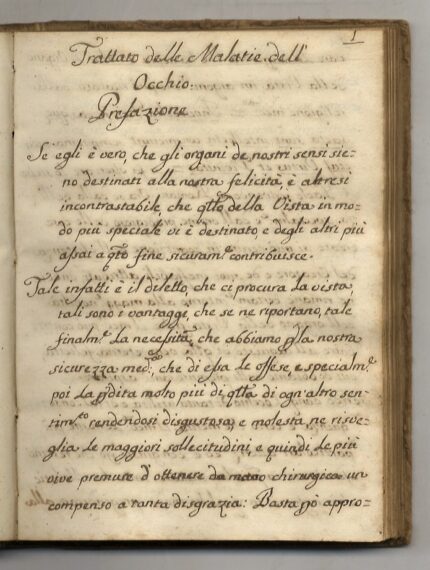 1
Trattato delle Malatie dell'
Occhio.
Prefazione
Se egli è vero, che gli organi de nostri sensi sie-
no destinati alla nostra felicità, è altresi
incontrastabile, che qllo della Vista in mo-
do più speciale vi è destinato, e degli altri più
assai a qsto fine sicuram.e contribuisce.
Tale infatti è il diletto, che ci procura la vista,
tali sono i vantaggi, che se ne riportano, tale
finalm.e la necessità, che abbiamo p la nostra
sicurezza med.ma, che di essa le offese, e specialm.e
poi la pdita molto più di qlla di ogn'altro sen-
tim.to rendendosi disgustosa, e molesta ne risve-
glia le maggiori sollecitudini, e quindi le più
vive premure d'ottenere da mano chirurgica un
compenso a tanta disgrazia: Basta pò appro-